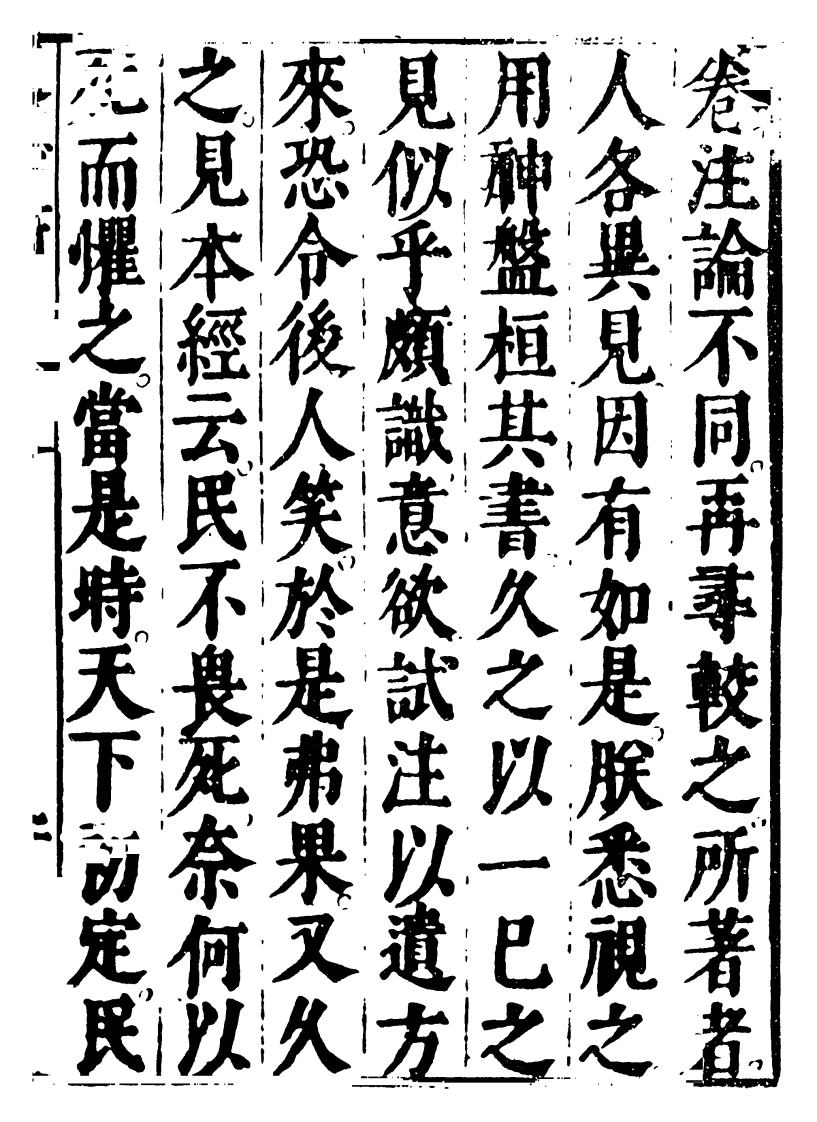 卷注論不同再尋較之所著者
人各異見因有如是朕悉視之
用神盤桓其書久之以一巳之
見似乎頗識意欲試注以遺方
來恐令後人笑於是弗果又久
之見本經云民不畏死奈何以
死而懼之當是時天下初定民